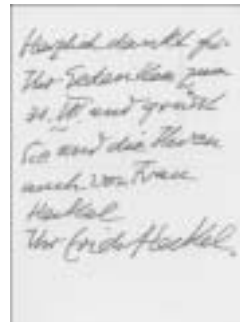 Herzlich dankt für
Ihr Gedenken zum
31. VII und grüsst
Sie und die Ihren
auch von Frau
Heckel
Ihr Erich Heckel.